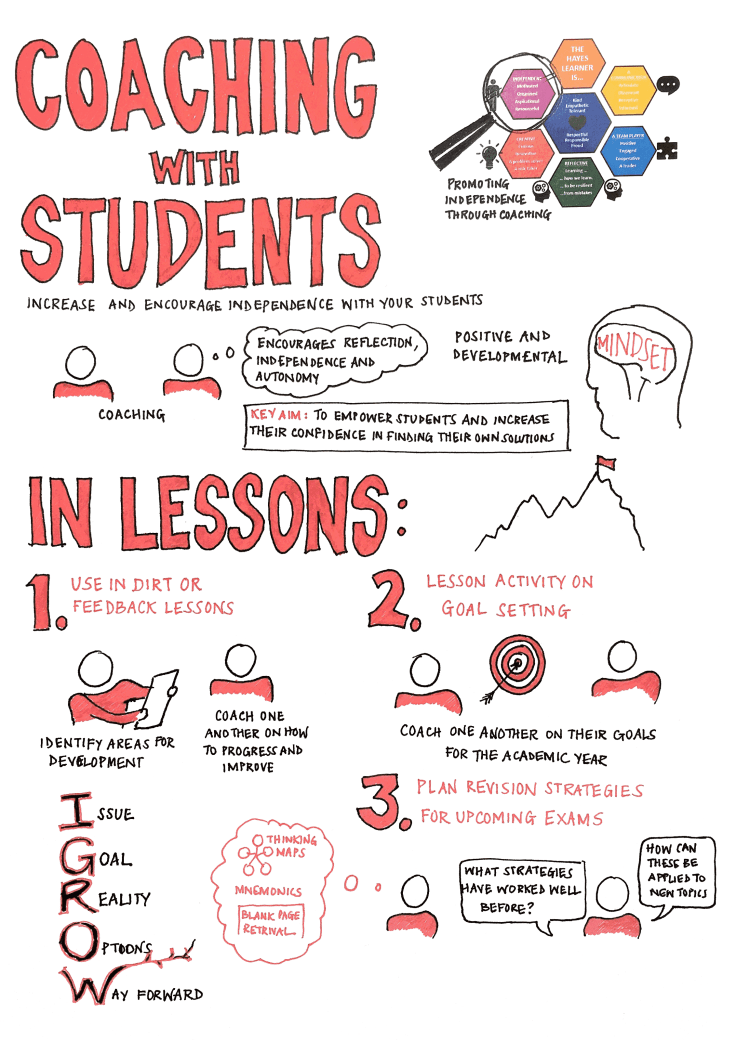 COACHING
WITH
STUDENTS
THE
HAYES
LEARNER
IS...
INDEPENDENT
Motivated
Organised
Aspirational
Resourceful
Kind
Empathetic
Tolerant
Respectful
Responsible
Proud
A TEAM PLAYER
Positive
Engaged
Cooperative
A leader
CREATIVE
REFLECTIVE
Learning...
... how we learn.
... to be resilient
... from mistakes
PROMOTING
INDEPENDENCE
THROUGH COACHING
INCREASE AND ENCOURAGE INDEPENDENCE WITH YOUR STUDENTS
ENCOURAGES REFLECTION,
INDEPENDENCE AND
AUTONOMY
COACHING
POSITIVE AND
DEVELOPMENTAL
MINDSET
KEY AIM: TO EMPOWER STUDENTS AND INCREASE
THEIR CONFIDENCE IN FINDING THEIR OWN SOLUTIONS
IN LESSONS:
1. USE IN DIRT OR
FEEDBACK LESSONS
IDENTIFY AREAS FOR
DEVELOPMENT
COACH ONE
ANOTHER ON HOW
TO PROGRESS AND
IMPROVE
2. LESSON ACTIVITY ON
GOAL SETTING
COACH ONE ANOTHER ON THEIR GOALS
FOR THE ACADEMIC YEAR
ISSUE
GOAL
REALITY
OPTOONS
WAY FORWARD
3. PLAN REVISION STRATEGIES
FOR UPCOMING EXAMS
THINKING
MAPS
MNEMONICS
BLANK PAGE
RETRIVAL
WHAT STRATEGIES
HAVE WORKED WELL
BEFORE?
HOW CAN
THESE BE
APPLIED TO
NEW TOPICS